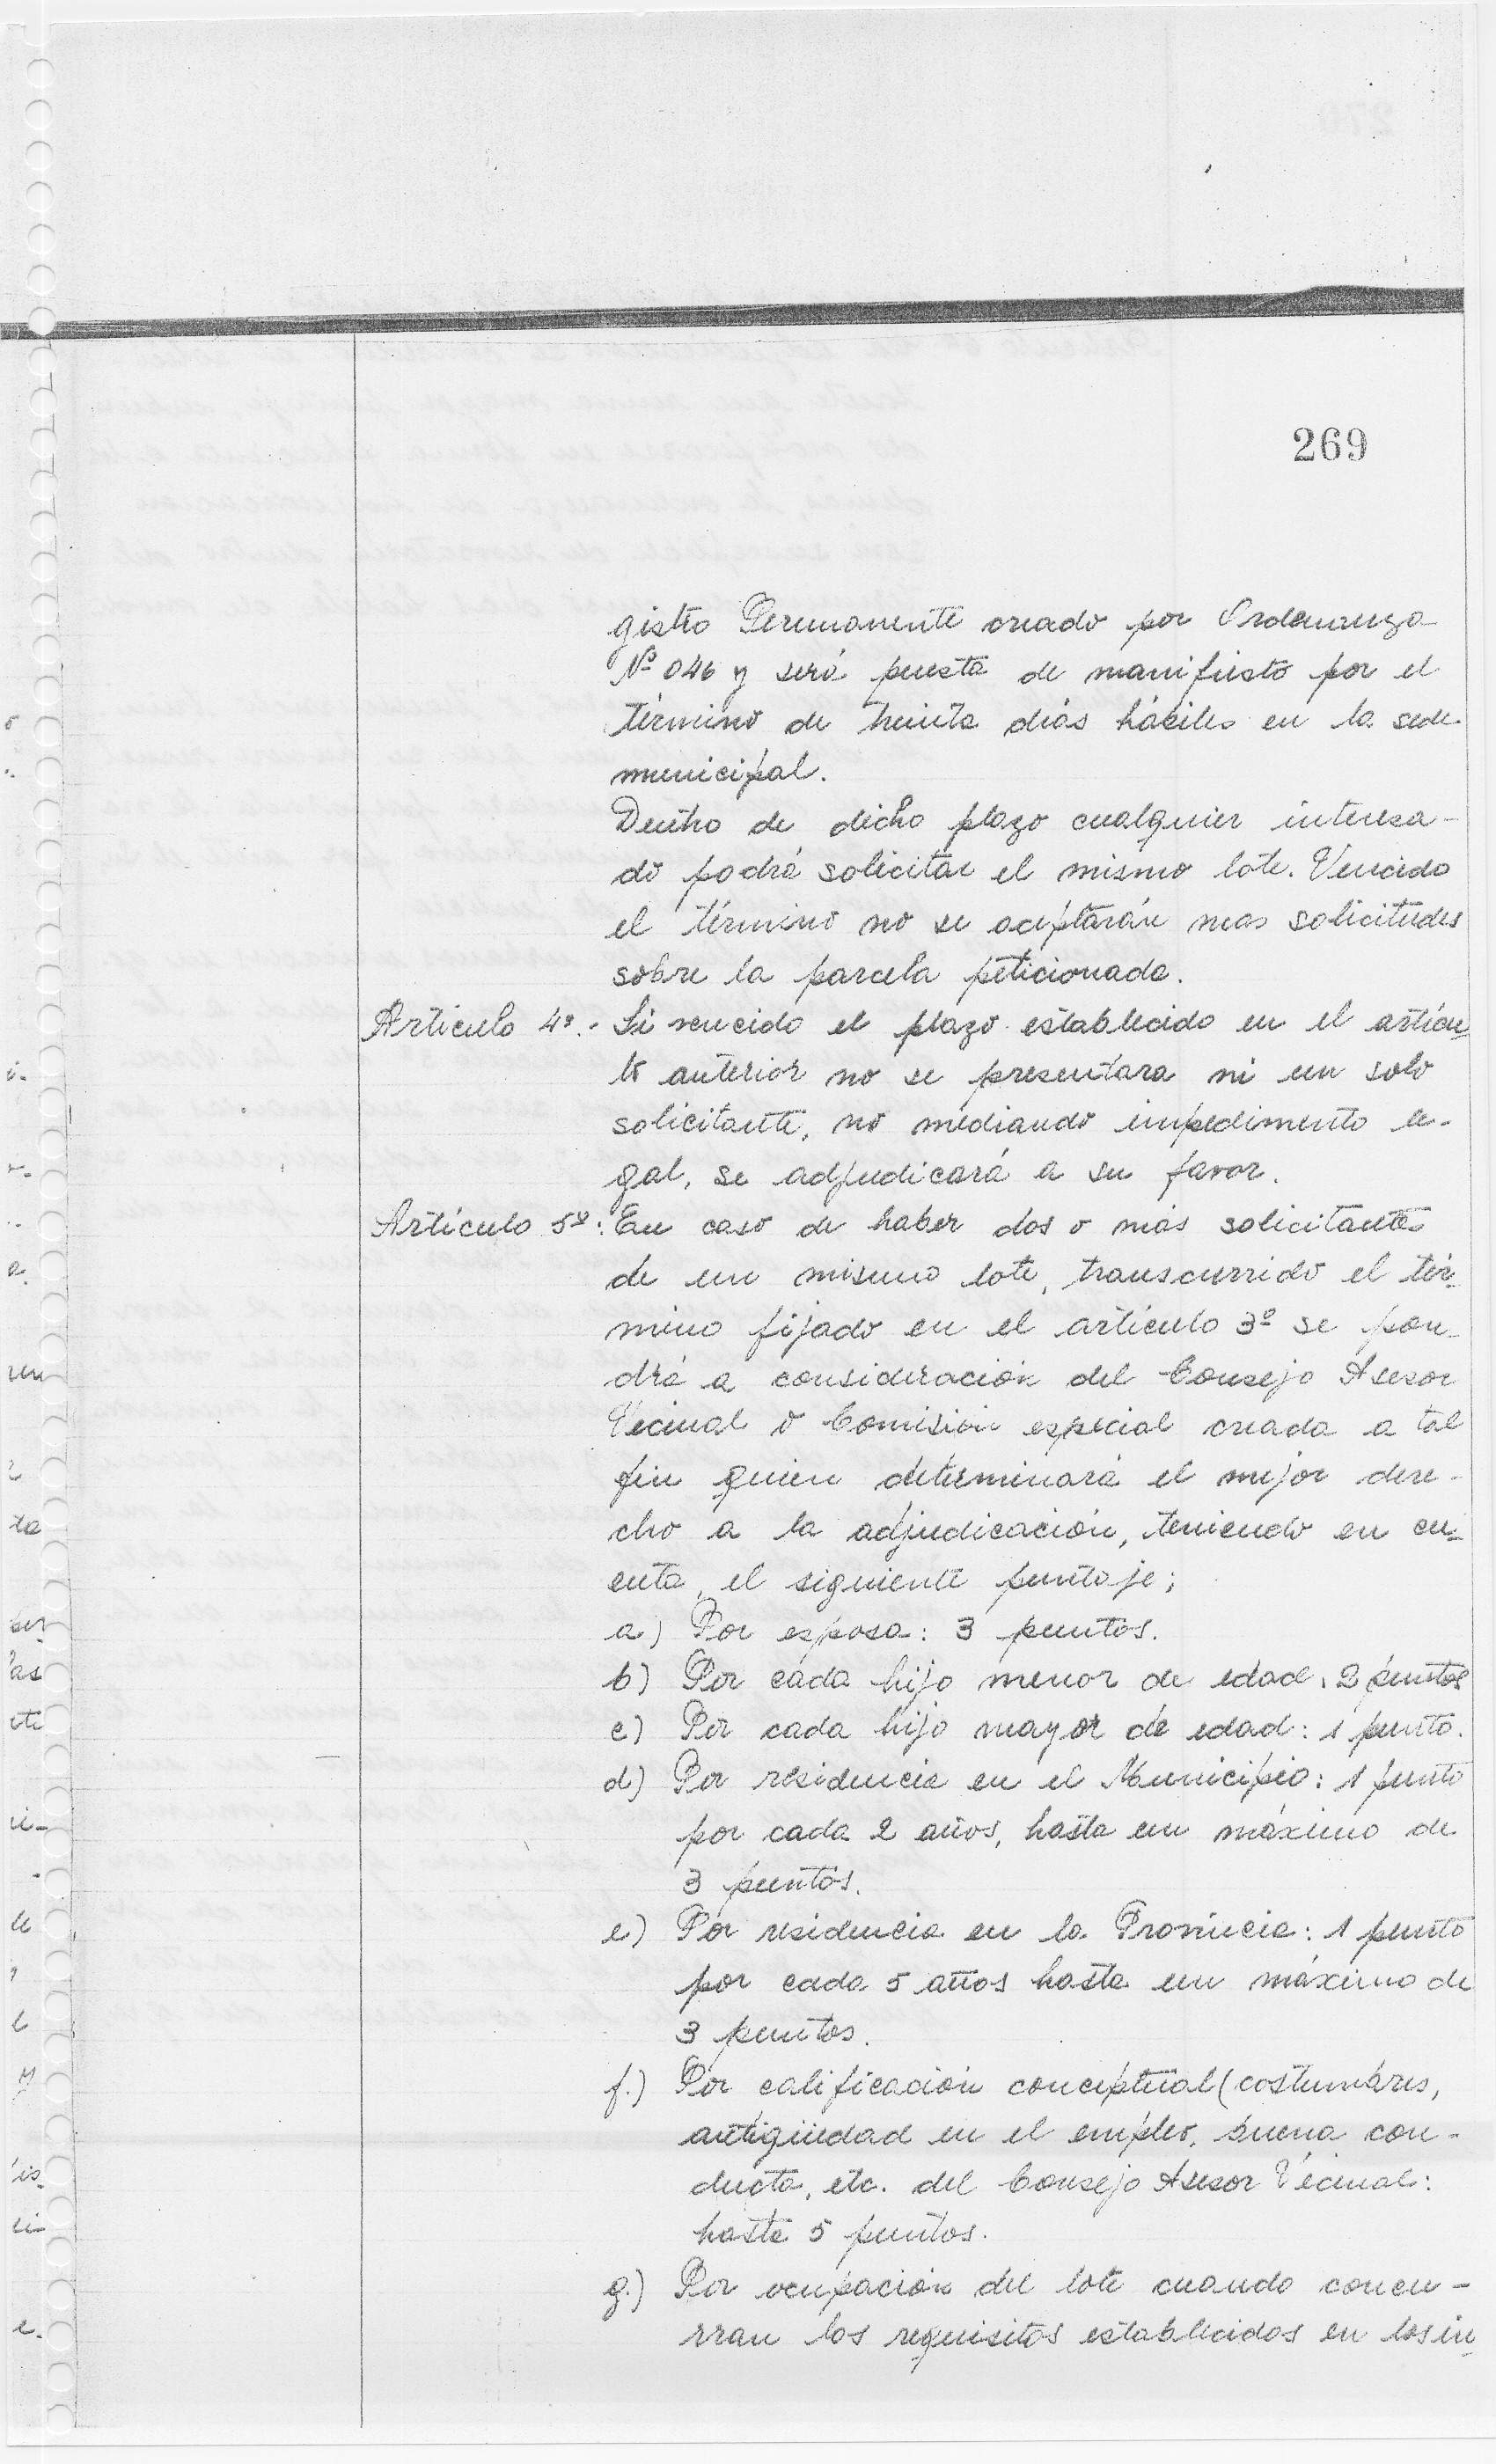 269
gistro Permanente creado por Ordenanza
Nº 046 y será puesta de manifiesto por el
término de treinta días hábiles en la sede
municipal.
Dentro de dicho plazo cualquier interesa-
do podrá solicitar el mismo lote. Vencido
el término no se aceptarán mas solicitudes
sobre la parcela peticionada.
Artículo 4º.- Si vencido el plazo establecido en el artícu-
lo anterior no se presentara ni un solo
solicitante, no mediando impedimento le-
gal, se adjudicará a su favor.
Artículo 5º: En caso de haber dos o más solicitantes
de un mismo lote, transcurrido el tér-
mino fijado en el artículo 3º se pon-
drá a consideración del Consejo Asesor
Vecinal o Comisión especial creada a tal
fin quien determinará el mejor dere-
cho a la adjudicación, teniendo en cu-
enta, el siguiente puntaje;
a) Por esposa: 3 puntos.
b) Por cada hijo menor de edad: 2 puntos
c) Por cada hijo mayor de edad: 1 punto.
d) Por residencia en el Municipio: 1 punto
por cada 2 años, hasta un máximo de
3 puntos.
e) Por residencia en la Provincia: 1 punto
por cada 5 años hasta un máximo de
3 puntos.
f.) Por calificación conceptual (costumbres,
antigüedad en el empleo, buena con-
ducta, etc. del Consejo Asesor Vecinal:
hasta 5 puntos.
g.) Por ocupación del lote cuando concu-
rran los requisitos establecidos en los in-